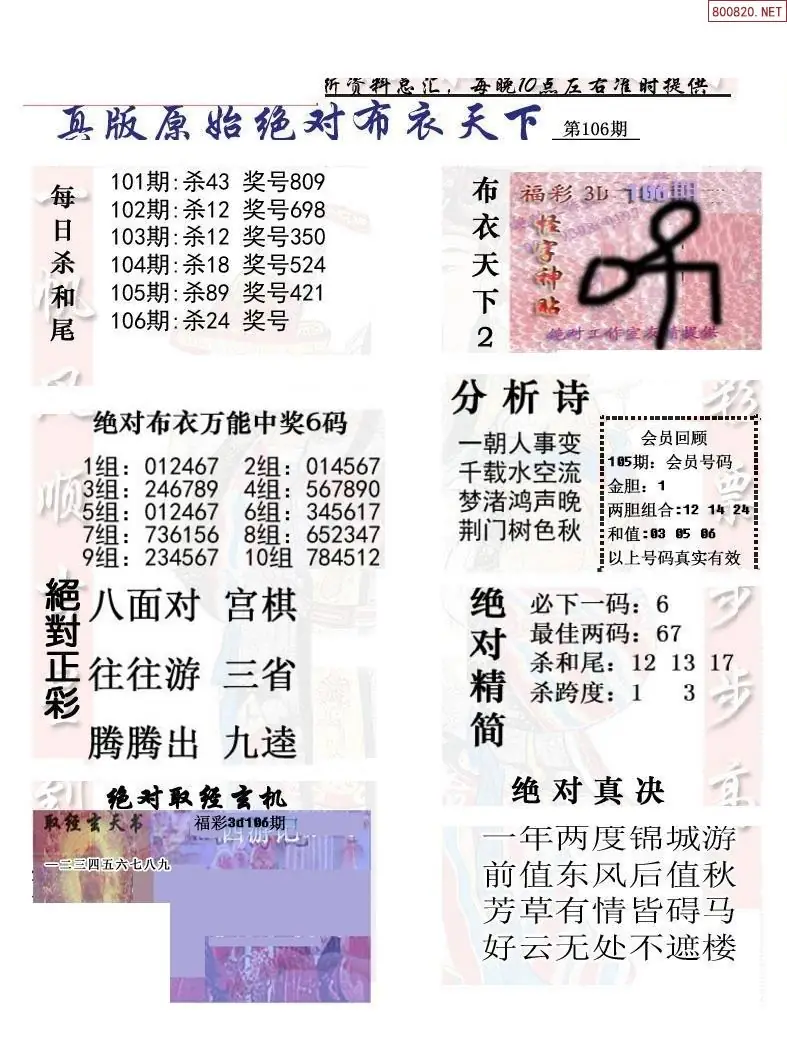 800820.NET
析资料总汇，每晚10点左右准时提供
真版原始绝对布衣天下 第106期
每日杀和尾
101期:杀43 奖号809
102期:杀12 奖号698
103期:杀12 奖号350
104期:杀18 奖号524
105期:杀89 奖号421
106期:杀24 奖号
布衣天下2
福彩 3D 106期
怪字神贴
绝对工作室友情提供
绝对布衣万能中奖6码
1组：012467 2组：014567
3组：246789 4组：567890
5组：012467 6组：345617
7组：736156 8组：652347
9组：234567 10组 784512
分析诗
一朝人事变
千载水空流
梦渚鸿声晚
荆门树色秋
会员回顾
105期：会员号码
金胆：1
两胆组合:12 14 24
和值:03 05 06
以上号码真实有效
絕對正彩
八面对 宫棋
往往游 三省
腾腾出 九逵
绝对精简
必下一码：6
最佳两码：67
杀和尾：12 13 17
杀跨度：1 3
绝对取经玄机
取经玄天书 福彩3d106期
西游记
一二三四五六七八九
绝对真决
一年两度锦城游
前值东风后值秋
芳草有情皆碍马
好云无处不遮楼